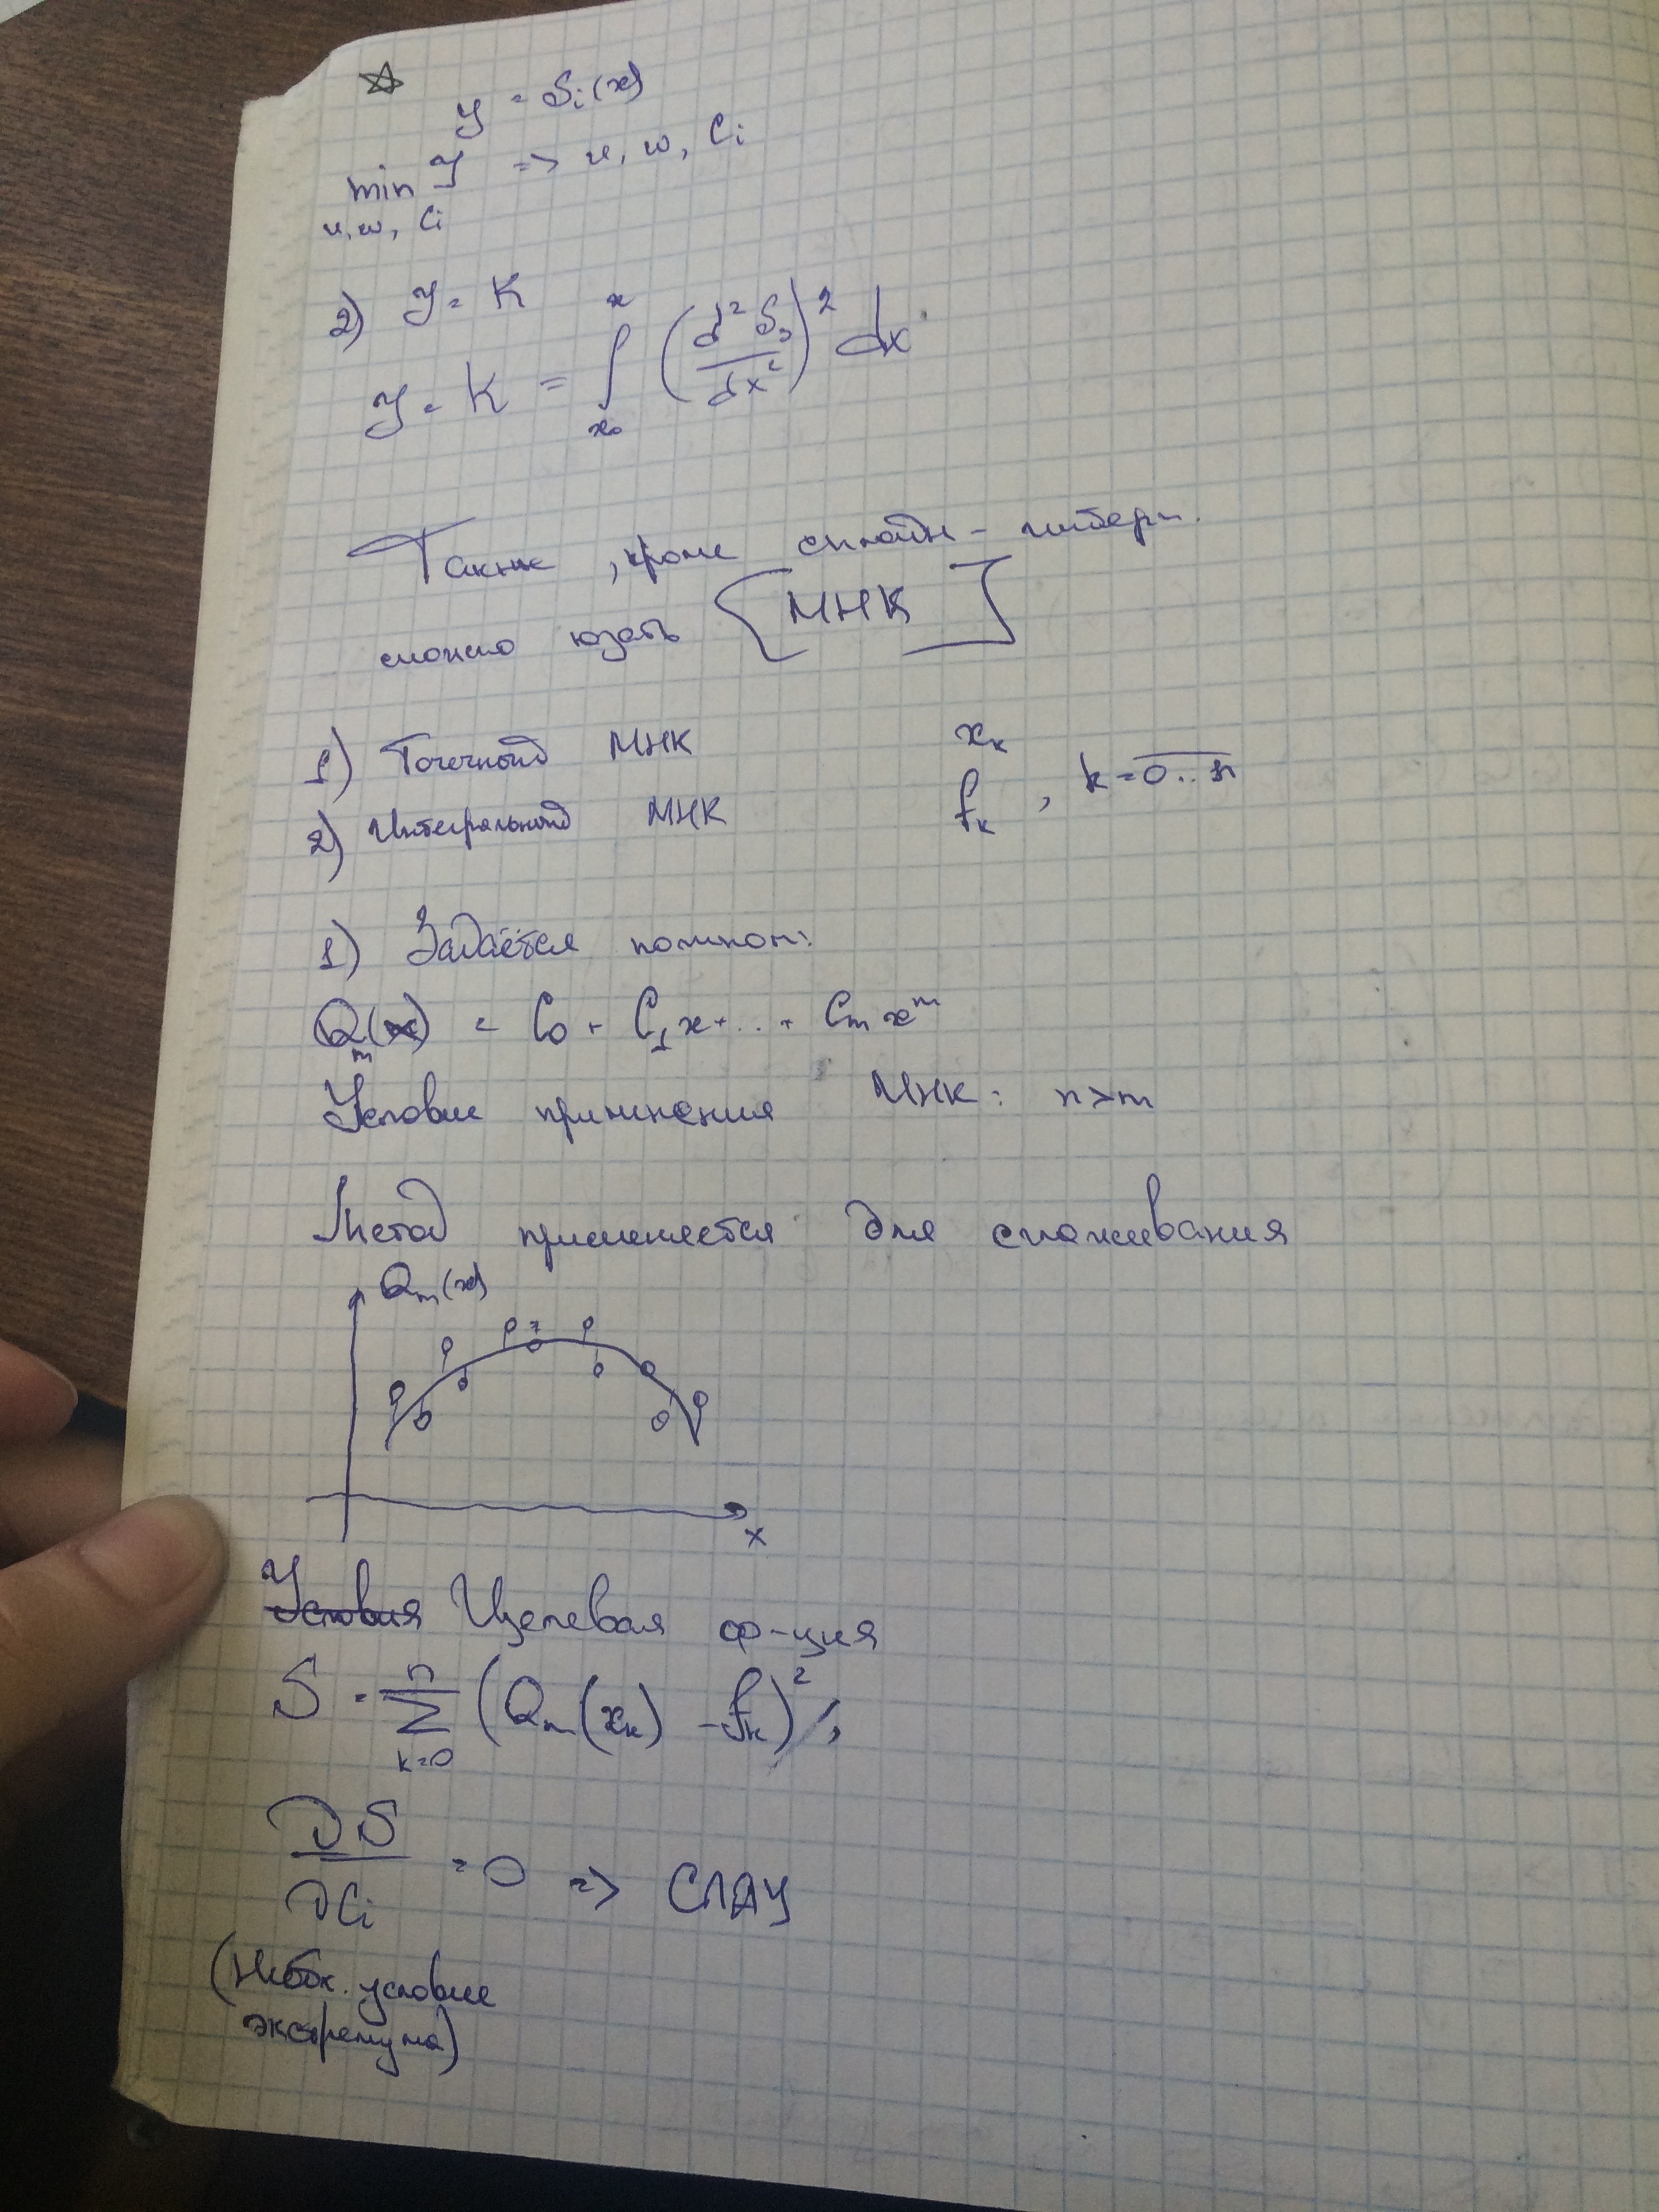 y = Si(x)
min y => u, w, Ci
u, w, Ci
2) y = K
y = K = ∫ x₀ x (d²S₃/dx²)² dx
Также, кроме сплайн-интерп.
можно юзать [МНК]
1) Точечный МНК xₖ
2) Интегральный МНК fₖ, k=0..n
1) Задаётся полином:
Qₘ(x) = C₀ + C₁x + ... + Cₘxᵐ
Условие применения МНК: n>m
Метод применяется для сглаживания
Qₘ(x)
x
Условия Целевая ф-ция
S = Σ k=0 n (Qₘ(xₖ) - fₖ)²,
∂S/∂Ci = 0 => СЛАУ
(Небх. условие
экстремума)